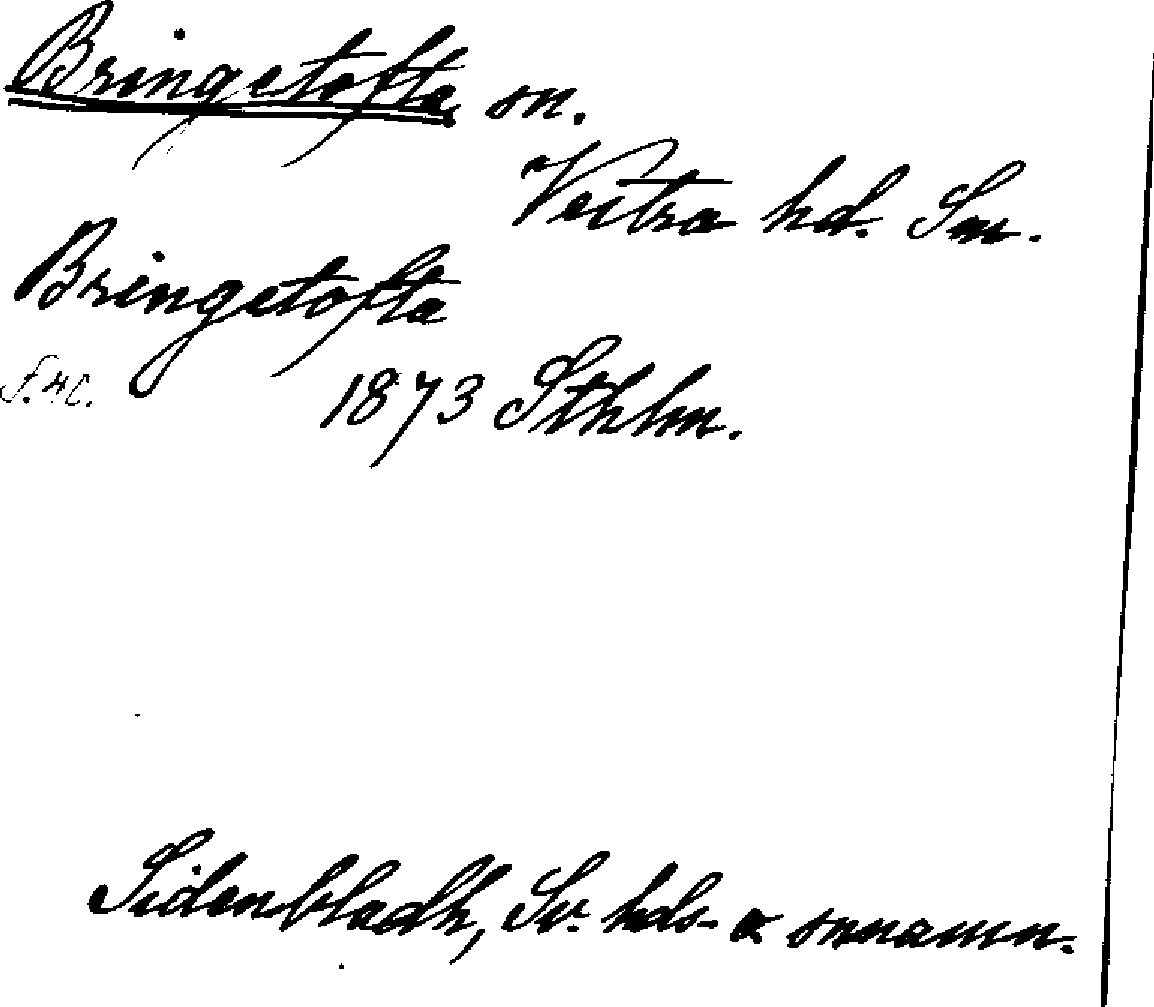 Bringetofta sn.
Vestra hd. Sm.
Bringetofta
s. 40. 1873 Sthlm.
Sidenbladh, Sv. hds- o snnamn.